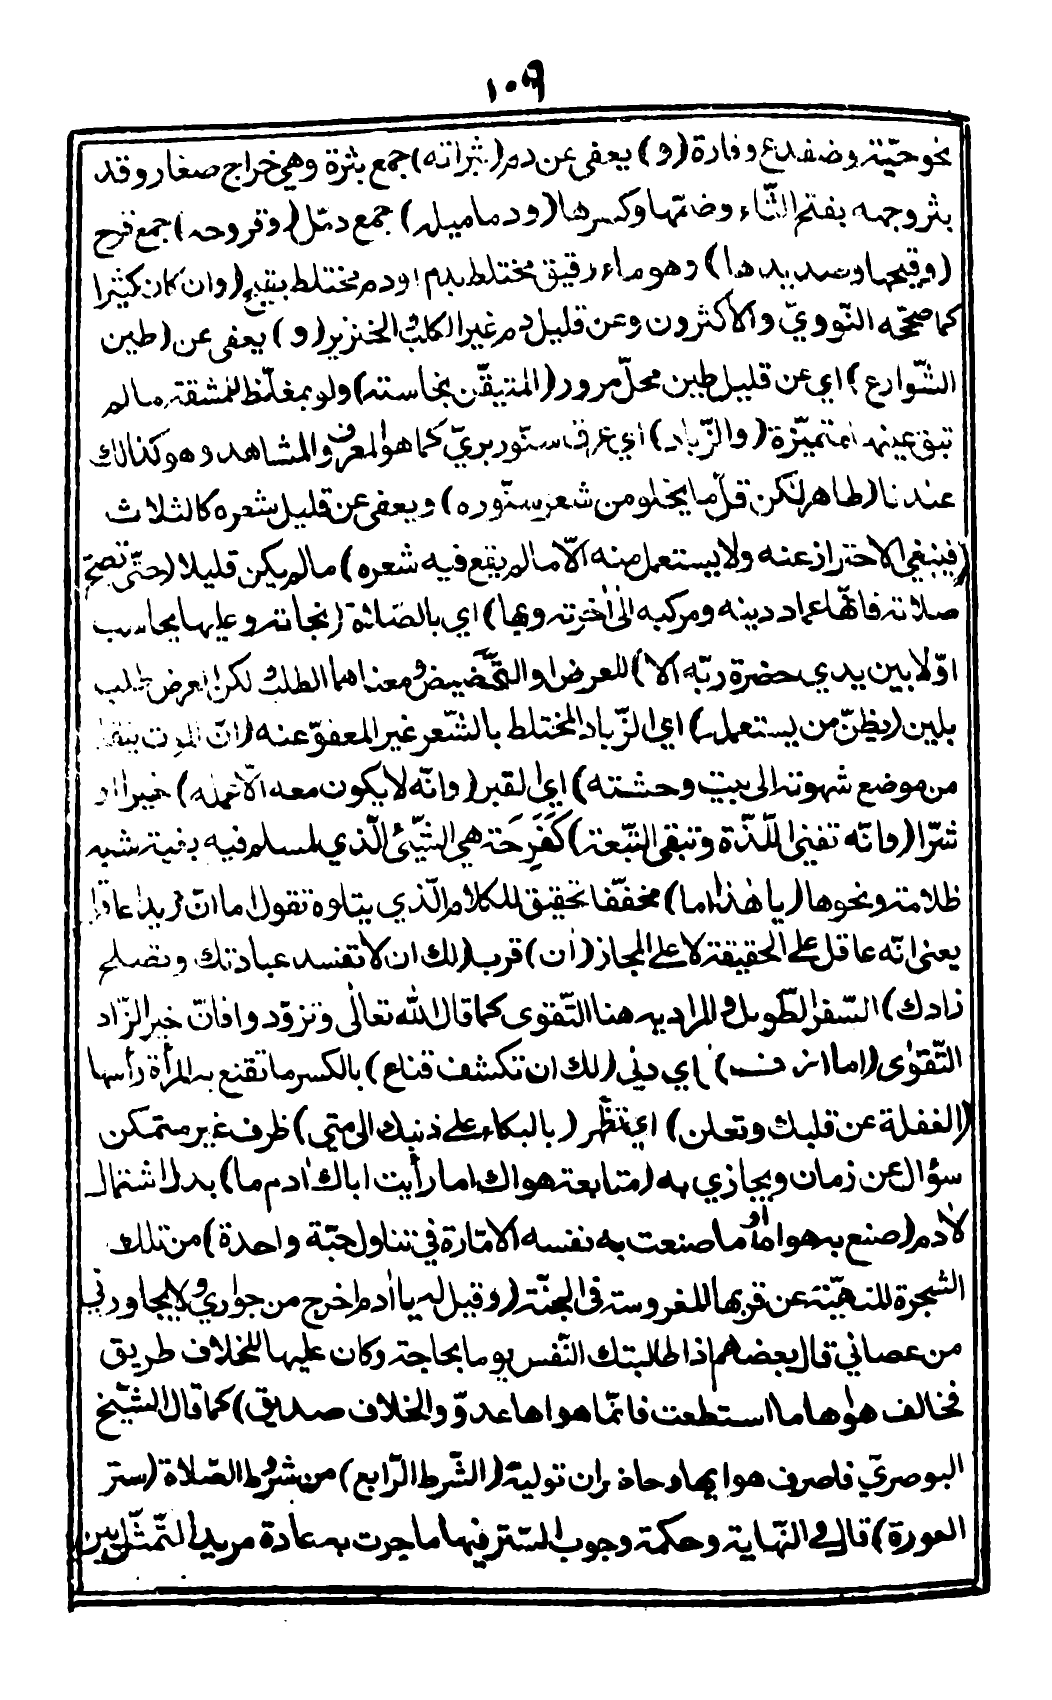 ١٠٩
نحو حيّة وضفدع وفارة (و) يعفى عن دم (بثراته) جمع بثرة وهي خراج صغار وقد
بثر وجهه بفتح الثّاء وضمّها وكسرها (ودماميله) جمع دمّل (وقروحه) جمع قرح
(وقيحها وصديدها) وهو ماء رقيق مختلط بدم او دم مختلط بقيح (وان كان كثيرا
كما صحّحه النّوويّ والأكثرون وعن قليل دم غير الكلب والخنزير (و) يعفى عن (طين
الشّوارع) اي عن قليل طين محلّ مرور (المتيقّن نجاسته) ولو بمغلّظ للمشقة ما لم
تبق عينها متميّزة (والزّباد) اي عرق سنّور بريّ كما هو المعروف والمشاهد وهو كذالك
عندنا (طاهر لكن قلّ ما يخلو من شعر سنّوره) ويعفى عن قليل شعره كالثلاث
(فينبغي الاحتراز عنه ولا يستعمل منه الّا ما لم يقع فيه شعره) ما لم يكن قليلا (حتّى تصحّ
صلاته فانّها عماد دينه ومركبه الى اٰخرته وبها) اي بالصّلاة (نجاته وعليها يحاسب
اوّلا بين يدي حضرة ربّه ألا) للعرض او التّحضيض ومعناهما الطلب لكن العرض طلب
بلين (يظنّ من يستعمله) اي الزّباد المختلط بالشّعر غير المعفوّ عنه (انّ الموت ينقله
من موضع شهوته الى بيت وحشته) اي القبر (وانّه لا يكون معه الّا عمله) خيرا او
شرّا (وانّه تفنى اللّذة وتبقى التّبعة) كَفَرِحَة هي الشّيئ الّذي للمسلم فيه بغية شبه
ظلامة ونحوها (يا هٰذا اما) مخفّفا تحقيق للكلام الّذي يتلوه تقول اما انّ زيدا عاقل
يعني انّه عاقل على الحقيقة لا على المجاز (اٰن) قرب (لك ان لا تفسد عبادتك وتصلح
زادك) السّفر الطّويل والمراد به هنا التّقوى كما قال اللّٰه تعالٰى وتزوّدوا فانّ خير الزّاد
التّقوٰى (اما ازف) اي دنٰي (لك ان تكشف قناع) بالكسر ما تقنع به المرأة رأسها
(الغفلة عن قلبك وتعلن) اي تظهر (بالبكاء على ذنبك الى متى) ظرف غير متمكن
سؤال عن زمان ويجازي به (متابعة هواك اما رأيت اباك اٰدم ما) بدل اشتمال
لاٰدم (صنع به هواه) او ما صنعت به نفسه الامّارة في تناول حبّة واحدة) من تلك
الشجرة المنهيّة عن قربها المغروسة فى الجنّة (وقيل له يا اٰدم اخرج من جواري ولا يجاورني
من عصاني قال بعضهم اذا طالبتك النّفس يوما بحاجة وكان عليها للخلاف طريق
فخالف هوٰاها ما استطعت فانّما هواها عدوّ والخلاف صديق) كما قال الشّيخ
البوصريّ فاصرف هواها وحاذر ان تولّيه (الشّرط الرّابع) من شروط الصّلاة (ستر
العورة) قال في النّهاية وحكمة وجوب السّتر فيها ما جرت به عادة مريد التّمثّل بين